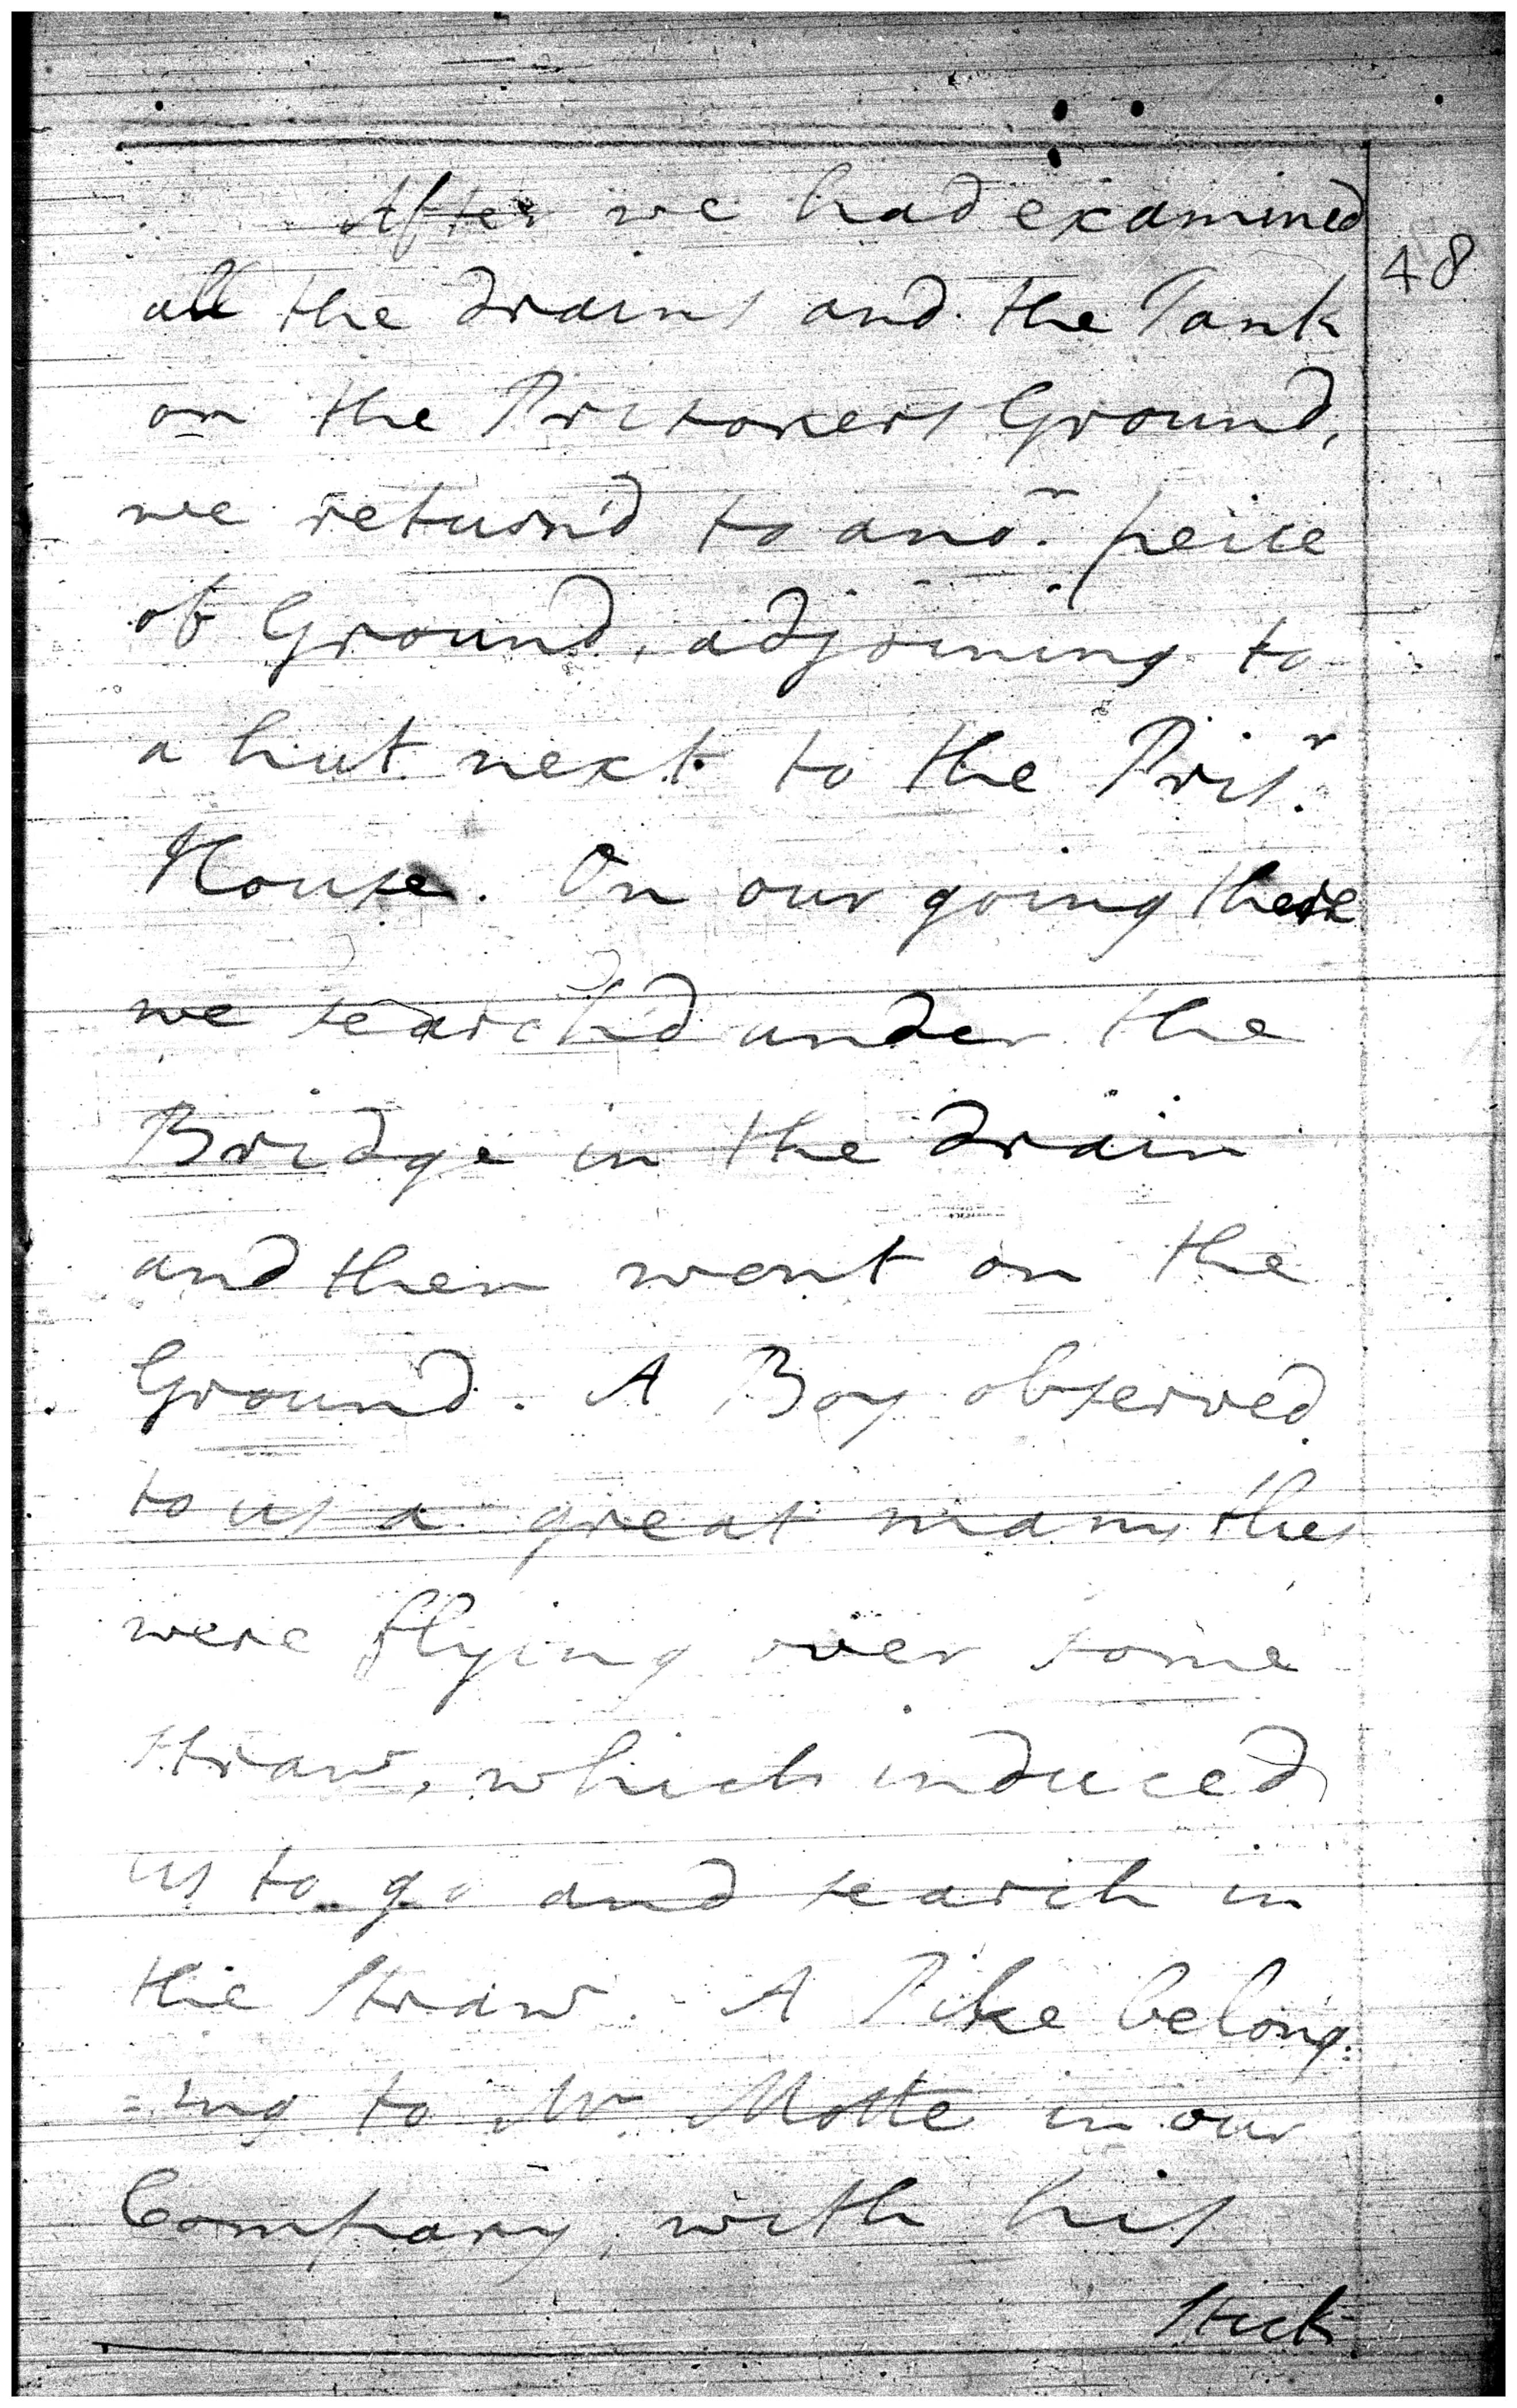 After we had examined
48
all the drains and the Tank
on the Prisoners Ground,
we return'd to ano.r peice
of Ground, adjoining to
a hut next to the Pris.r
House. On our going there
we search'd under the
Bridge in the drain
and then went on the
Ground. A Boy observed
to us a great many flies
were flying over some
straw, which induced
us to go and search in
the straw. A Pike belong:
=ing to Mr Motte in our
Company, with his
Stick